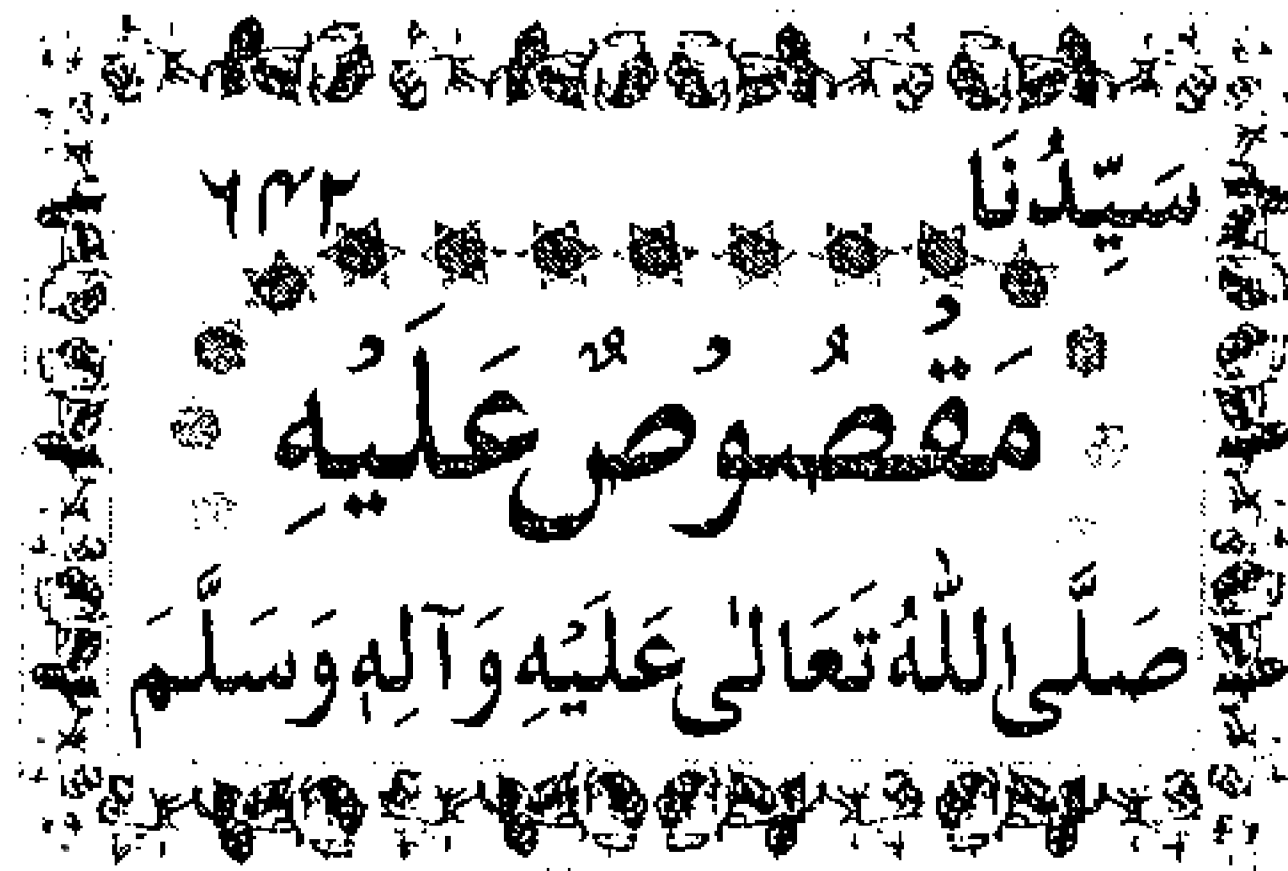 سَيِّدُنَا ٦۴٢
مَقْصُوصٌ عَلَيْهِ
صَلَّى اللّٰهُ تَعَالٰى عَلَيْهِ وَآلِهٖ وَسَلَّمَ